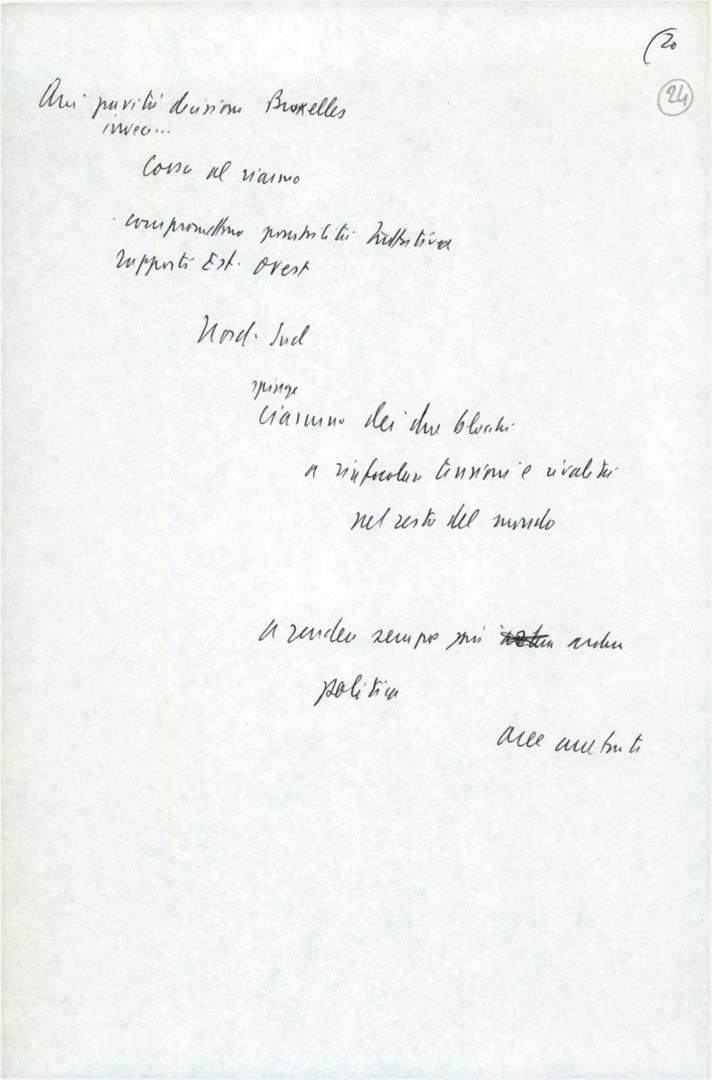 (20
24
gravità decisione Bruxelles
invece...
Corsa al riarmo
compromettono possibilità
rapporti Est-Ovest
Nord-Sud
spinge
ciascuno dei due blocchi
a rinfocolare tensioni e rivalità
nel resto del mondo
a rendere sempre più ardua
politica
aree